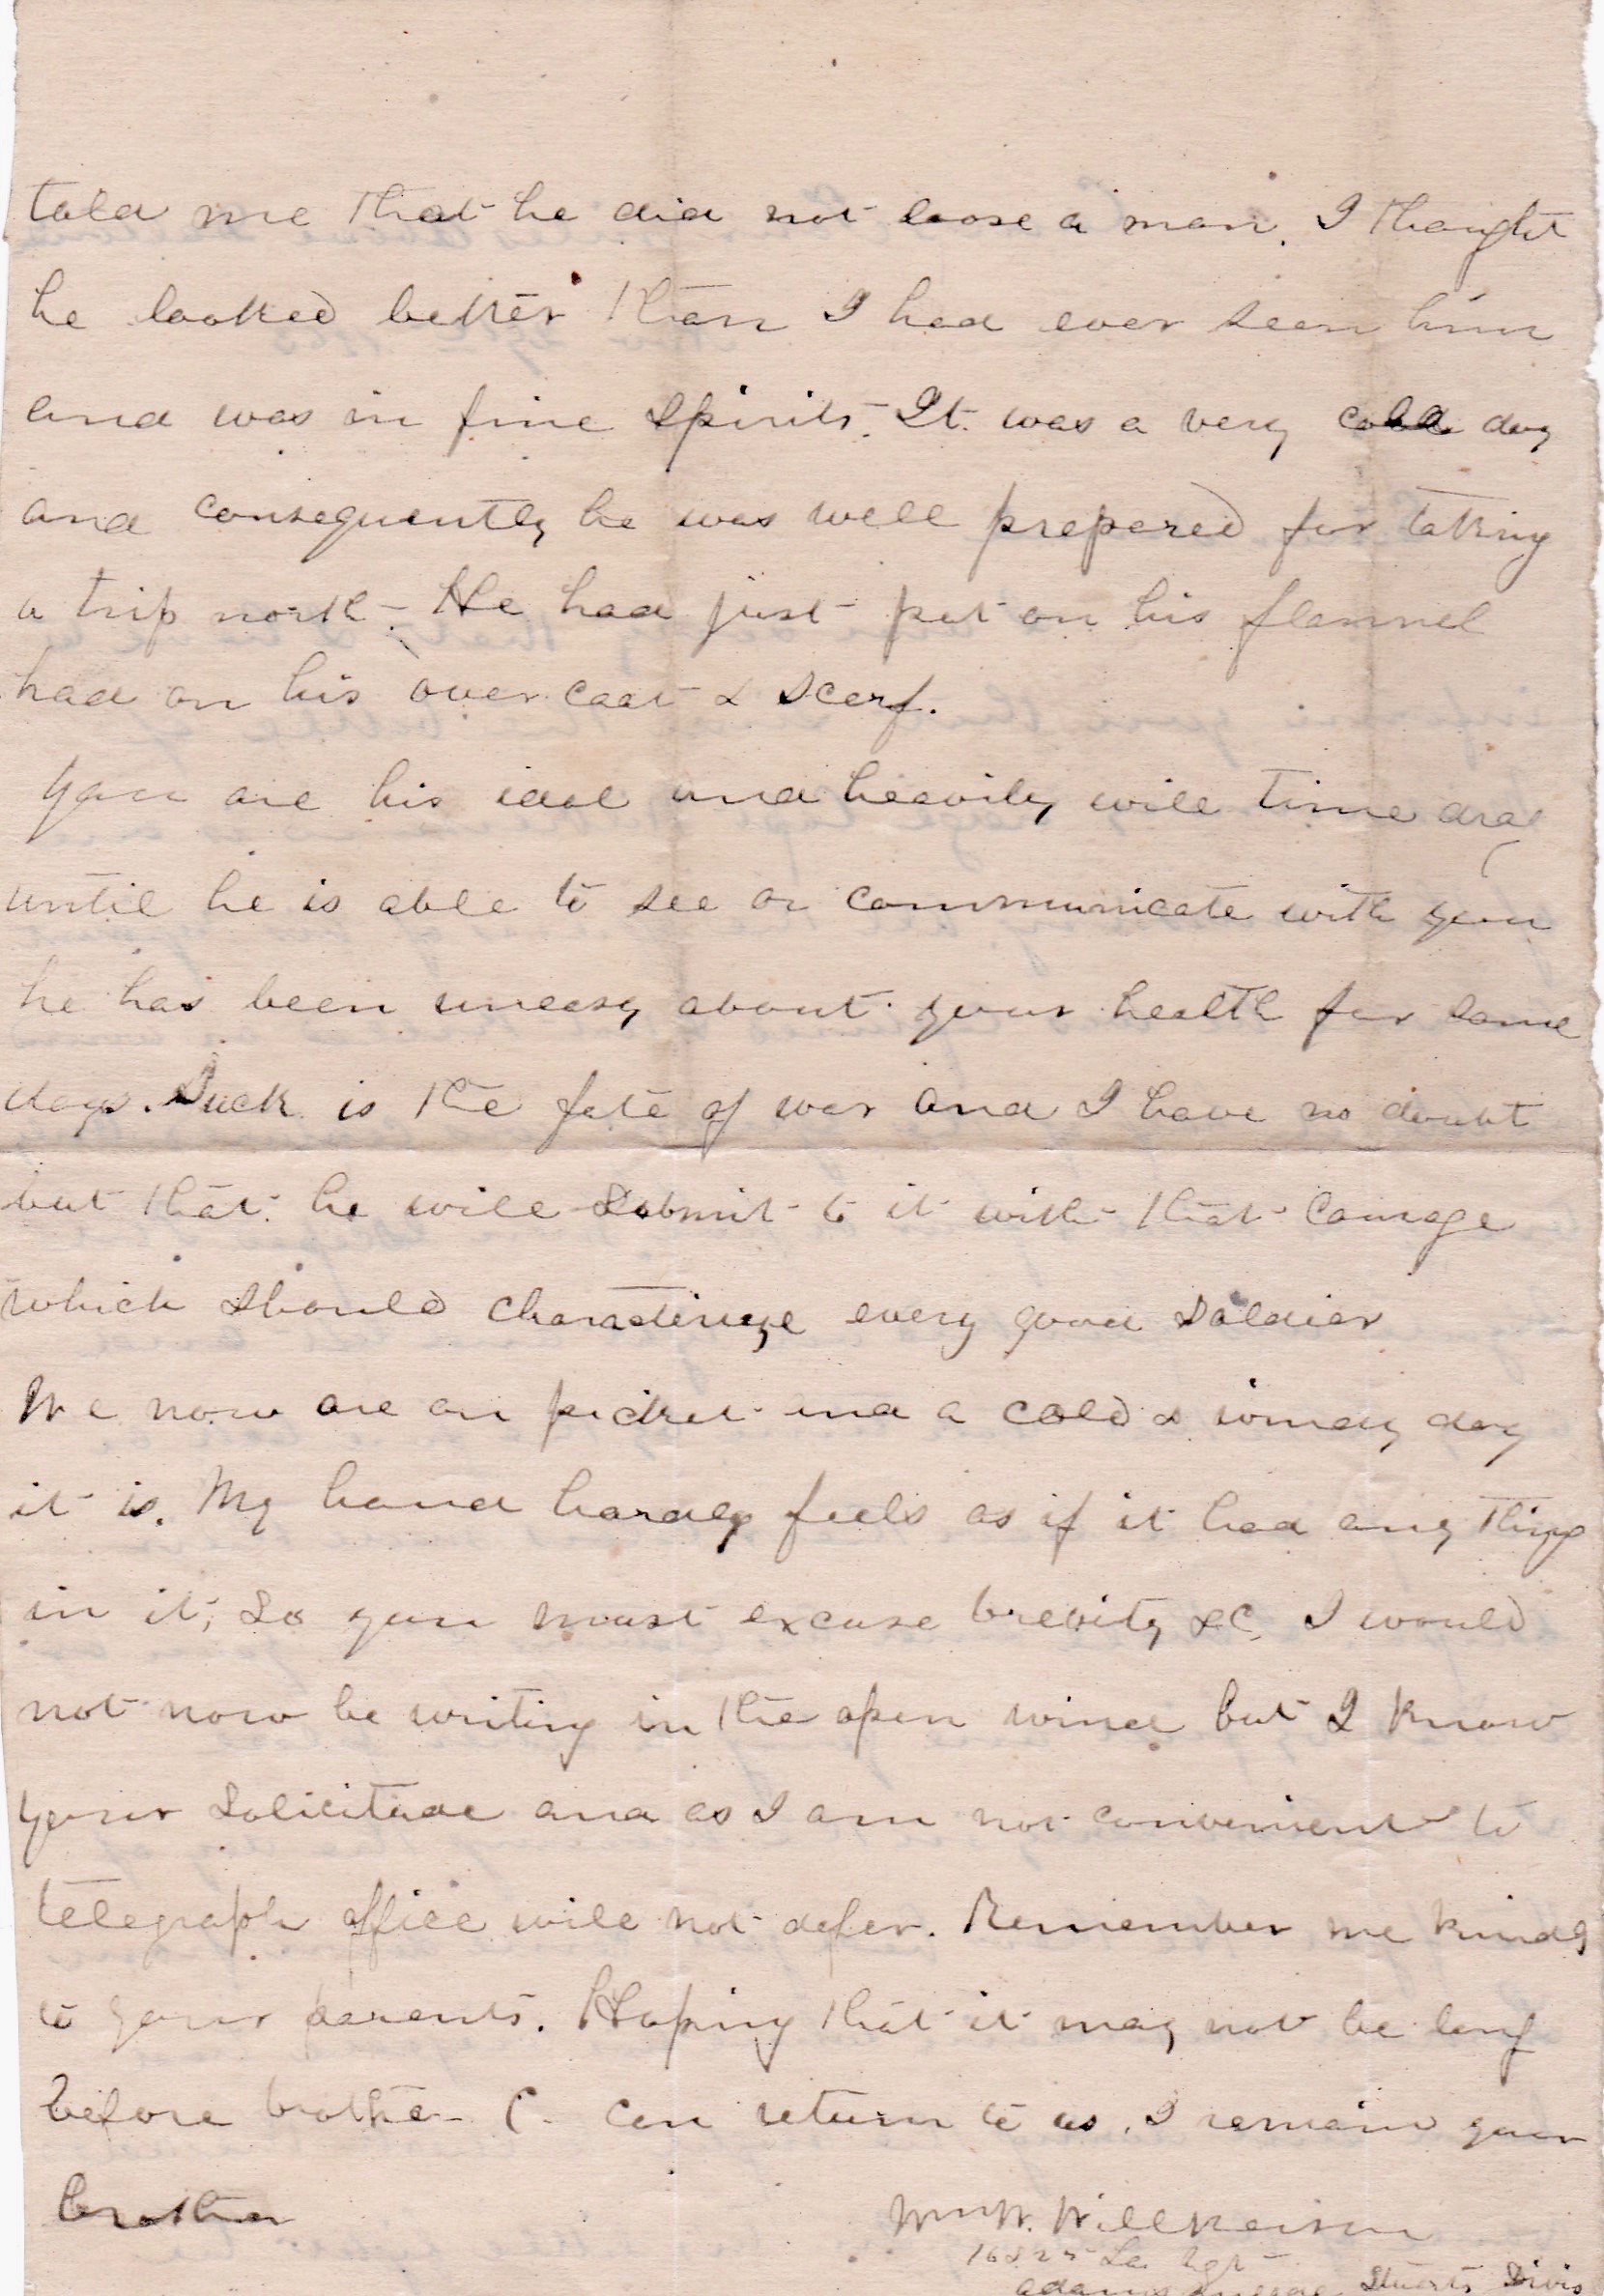 told me that he did not loose a man. I thought
he looked better than I had ever seen him
and was in fine spirits. It was a very cold day
and consequently he was well prepared for taking
a trip north - He had just put on his flannel
had on his over coat & scarf.
You are his idol and heavily will time drag
until he is able to see or communicate with you
he has been uneasy about your health for some
days. Such is the fate of war and I have no doubt
but that he will submit to it with that courage
which should charactirize every good soldier
We now are on picket and a cold & windy day
it is. My hand hardly feels as if it had any thing
in it, so you must excuse brevity &C, I would
not now be writing in the open wind but I know
your solicitude and as I am not convenient to
telegraph office will not defer. Remember me kindly
to your parents. Hoping that it may not be long
before brother C. can return to us, I remain your
brother
Wm W. Wilkerson
16 & 25 La Rgt
Adams Brigade Stuarts Divis